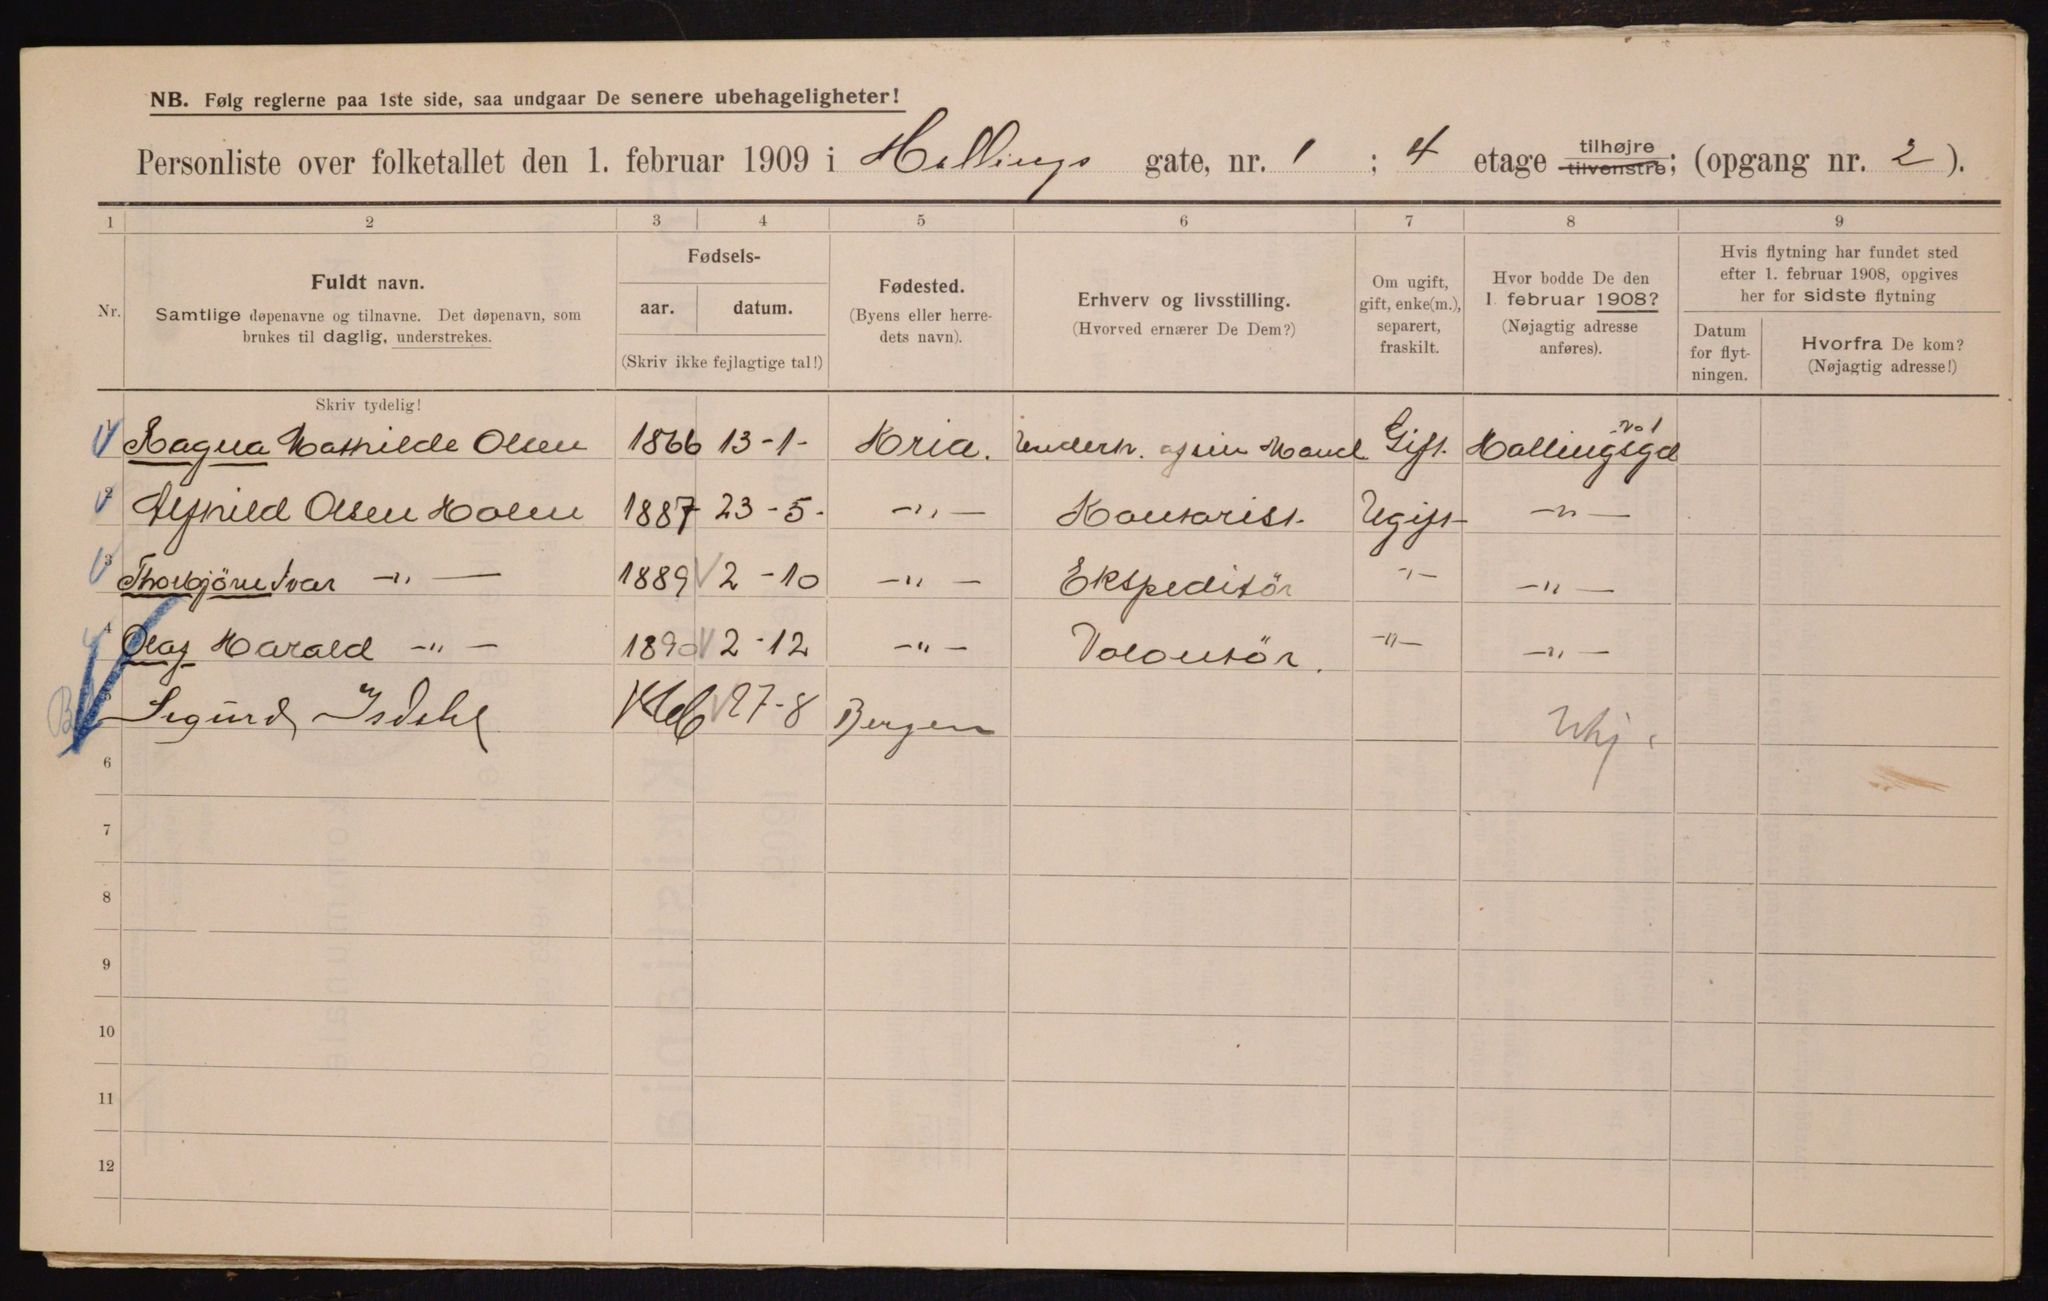 NB. Følg reglerne paa 1ste side, saa undgaar De senere ubehageligheter!
Personliste over folketallet den 1. februar 1909 i Hallings gate, nr. 1 ; 4 etage tilhøjre tilvenstre; (opgang nr. 2 ).
1 2 3 4 5 6 7 8 9
Nr. Fuldt navn. Samtlige døpenavne og tilnavne. Det døpenavn, som brukes til daglig, understrekes.
Fødsels- aar. datum. (Skriv ikke fejlagtige tal!)
Fødested. (Byens eller herredets navn).
Erhverv og livsstilling. (Hvorved ernærer De Dem?)
Om ugift, gift, enke(m.), separert, fraskilt.
Hvor bodde De den 1. februar 1908? (Nøjagtig adresse anføres).
Hvis flytning har fundet sted efter 1. februar 1908, opgives her for sidste flytning
Datum for flytningen.
Hvorfra De kom? (Nøjagtig adresse!)
Skriv tydelig!
1 Ragna Mathilde Olsen 1866 13-1- Kria. Underh. af sin Mand Gift. Hallingsgd No 1
2 Alfhild Olsen Holen 1887 23-5- -„- Kontorist. Ugift -„-
3 Thorbjörn Ivar -„- 1889 2-10 -„- Ekspeditör -„- -„-
4 Olaf Harald -„- 1890 2-12 -„- Volontör. -„- -„-
Sigurd Isdahl 27-8 Bergen
6
7
8
9
10
11
12